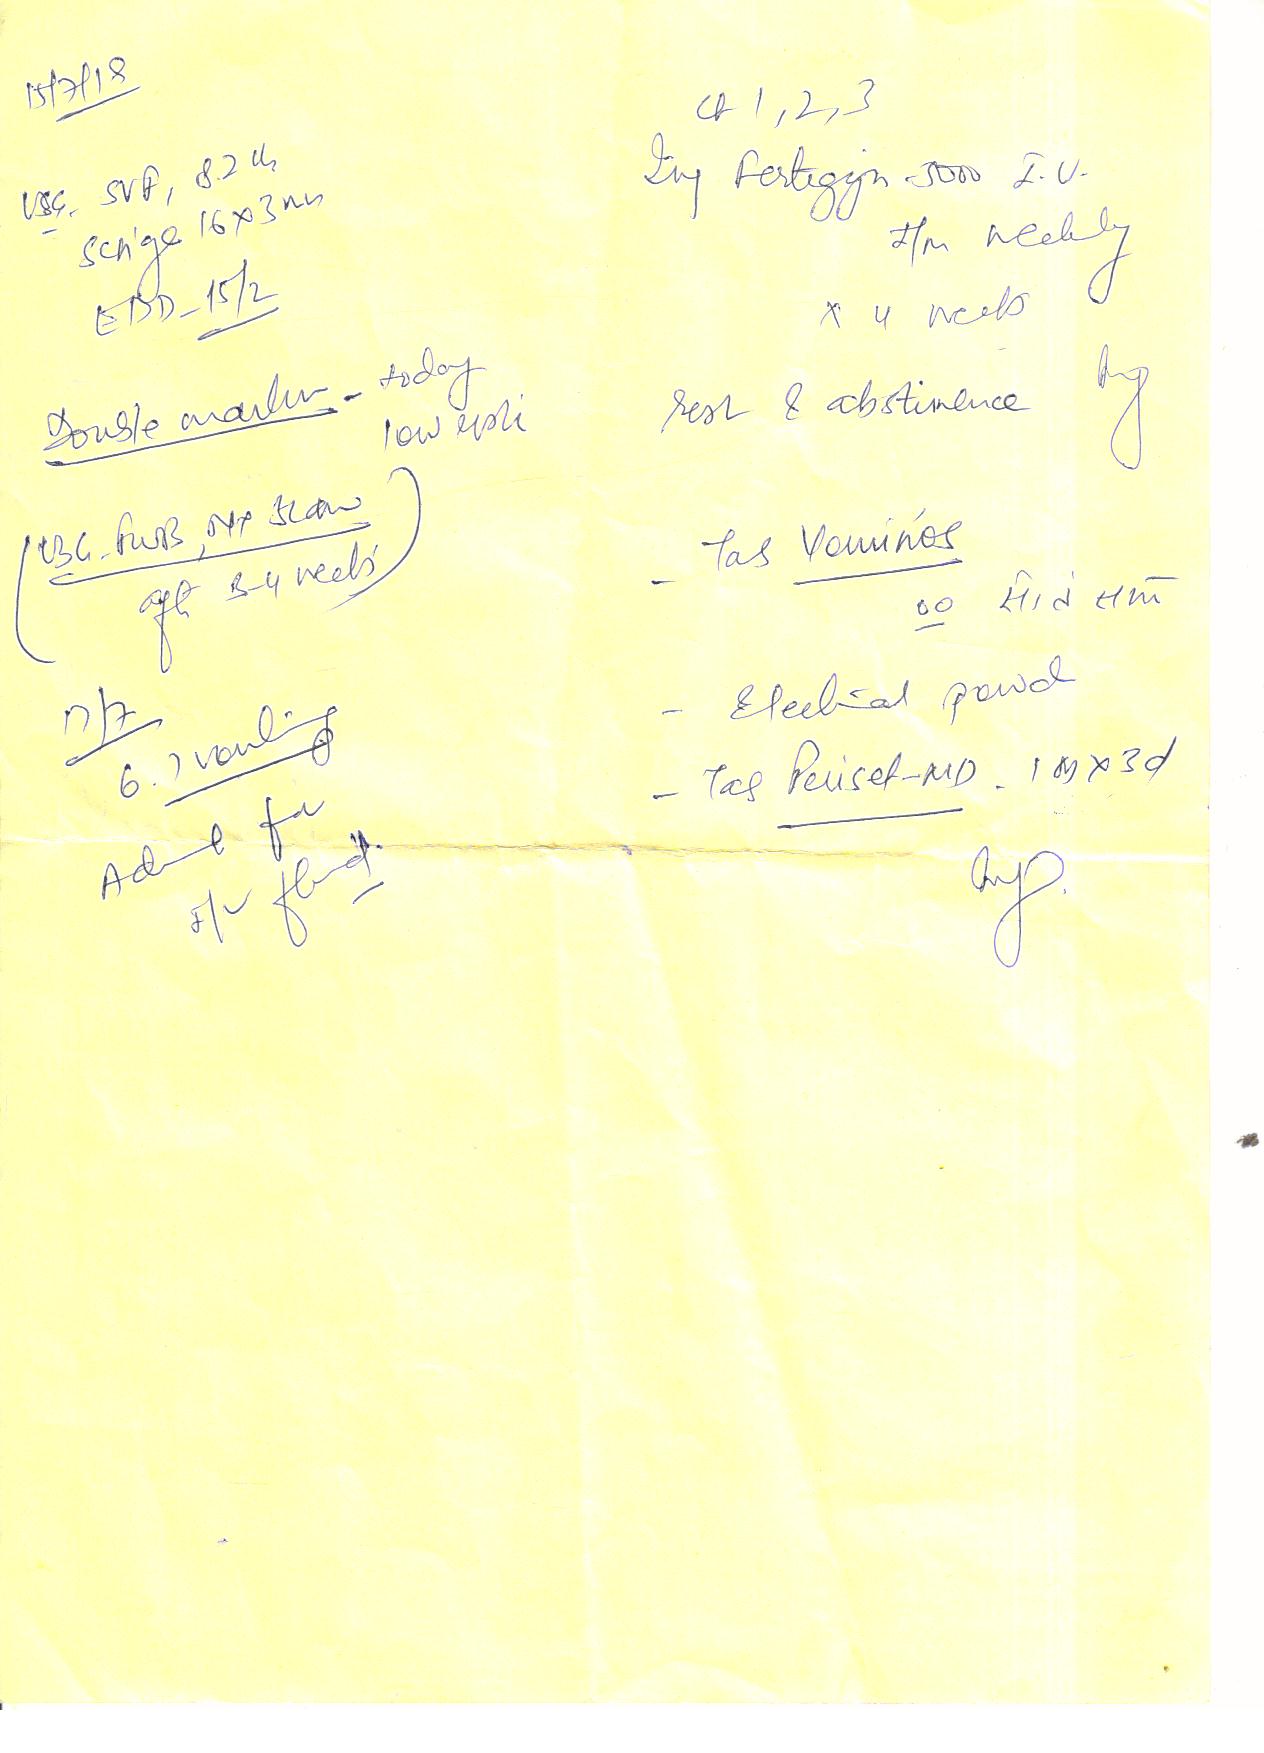 15/7/18
USG. SVP, 8.2 wk
SCH ige 16x3mm
EDD - 15/2
Double marker - today
low risk
USG - FWB, NT Scan
aft 3-4 weeks
17/7
vomiting
Admit for
I/V fluid.
Ct 1, 2, 3
Inj Fertigyn - 5000 I.U.
I/m weekly
x 4 weeks
rest & abstinence
- Tab Vominos
- Electral powd
- Tab Periset-MD - 1 x 3d